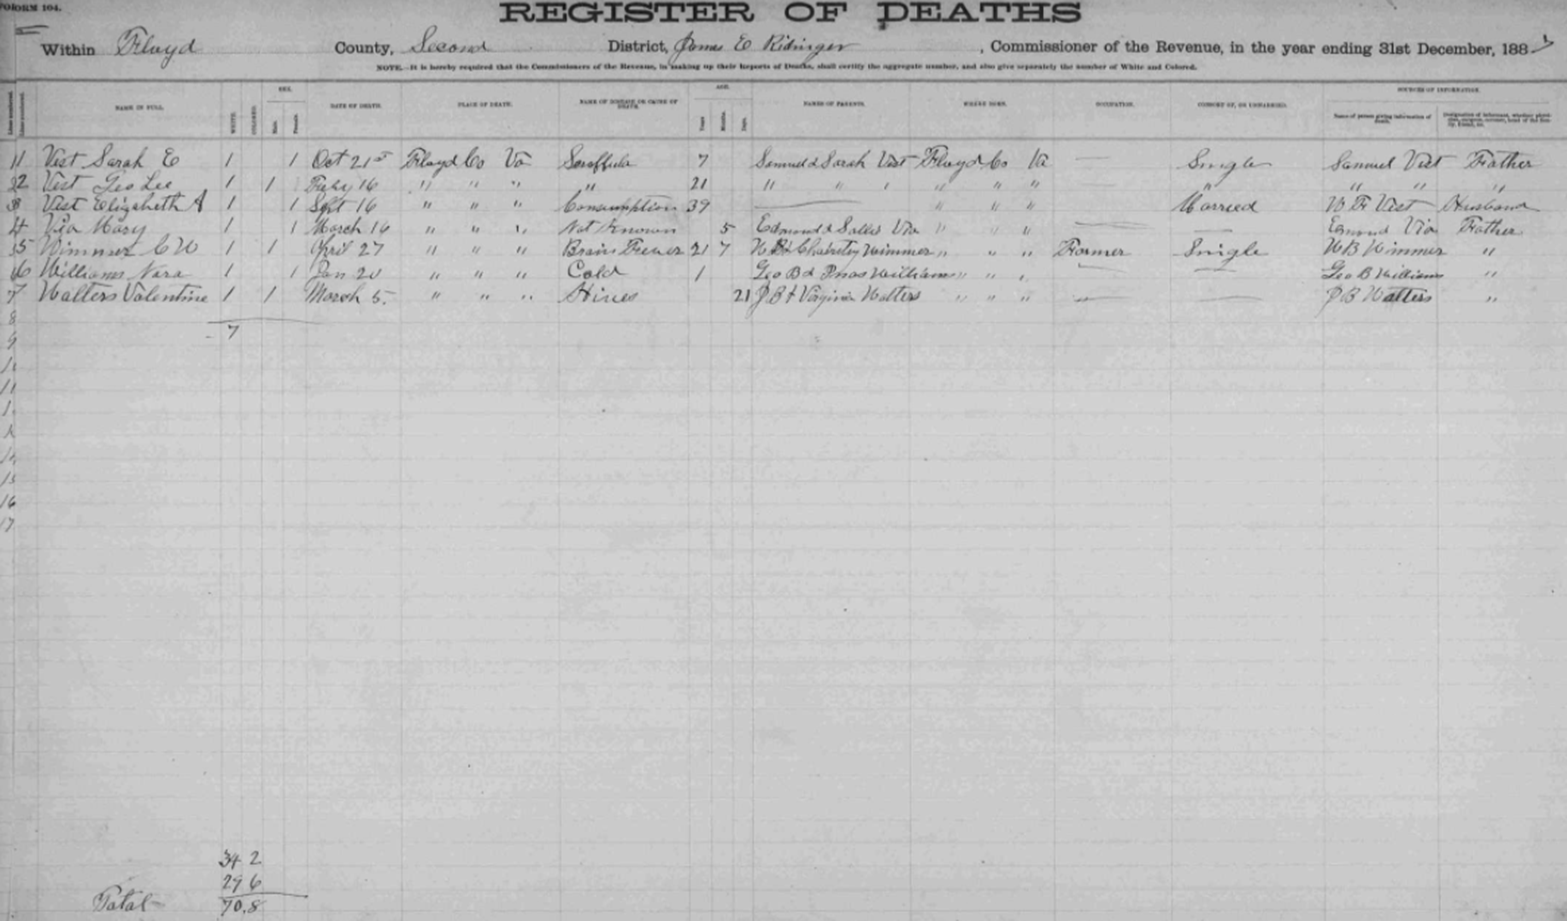 FORM 104.
REGISTER OF DEATHS
Within Floyd County, Second District, James E Ridinger, Commissioner of the Revenue, in the year ending 31st December, 188
NOTE.—It is hereby required that the Commissioners of the Revenue, in making up their Reports of Deaths, shall certify the aggregate number, and also give separately the number of White and Colored.
NAME IN FULL. WHITE. COLORED. SEX. Male. Female. DATE OF DEATH. PLACE OF DEATH. NAME OF DISEASE OR CAUSE OF DEATH. AGE. Years Months Days. NAMES OF PARENTS. WHERE BORN. OCCUPATION. CONSORT OF, OR UNMARRIED. SOURCES OF INFORMATION. Name of person giving information of death.
1 Vest Sarah E 1 1 Oct 21st Floyd Co Va Scroffula 7 Samuel & Sarah Vest Floyd Co Va — Single Samuel Vest Father
2 Vest Geo Lee 1 1 16 " " " " 21 " " " " " " " " " "
3 Vest Elizabeth A 1 1 Sept 16 " " " Consumption 39 — " " " Married Vest Husband
4 Via Mary 1 1 March 16 " " " Not Known 5 Edmund & Via " " " — — Edmund Via Father
5 Wimmer C W 1 1 April 27 " " " Brain Fever 21 7 W B & Charity Wimmer " " " Farmer Single W B Wimmer "
6 Williams 1 1 Jan 20 " " " Cold 1 Geo B & Williams " " " — — Geo B Williams "
7 Walters Valentine 1 1 March 5. " " " Hives 21 J B & Virginia Walters " " " — — J B Walters "
8 7
9
10
11
14
15
16
17
34 2
29 6
Total 70.8